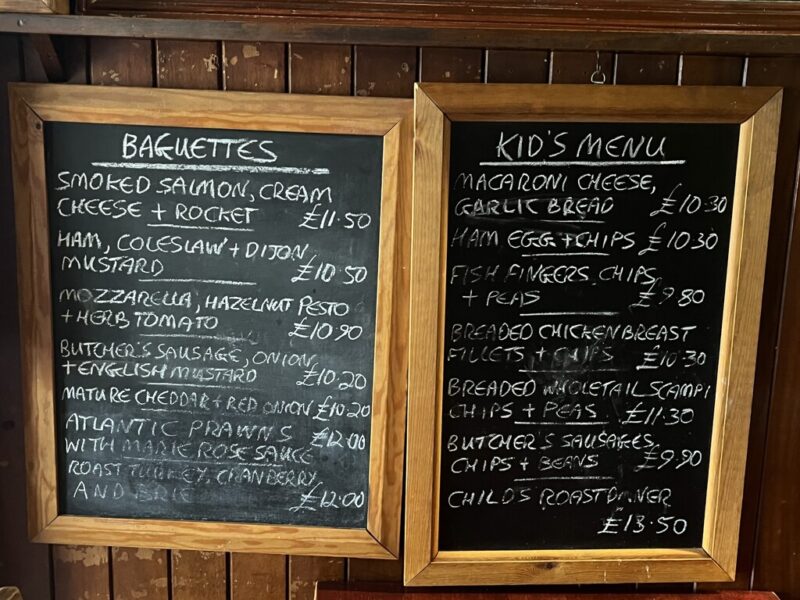 BAGUETTES
SMOKED SALMON, CREAM
CHEESE + ROCKET £11.50
HAM, COLESLAW + DIJON
MUSTARD £10.50
MOZZARELLA, HAZELNUT PESTO
+ HERB TOMATO £10.90
BUTCHER'S SAUSAGE, ONION
+ ENGLISH MUSTARD £10.20
MATURE CHEDDAR + RED ONION £10.20
ATLANTIC PRAWNS
WITH MARIE ROSE SAUCE £12.00
ROAST TURKEY, CRANBERRY
AND BRIE £12.00
KID'S MENU
MACARONI CHEESE,
GARLIC BREAD £10.30
HAM EGG + CHIPS £10.30
FISH FINGERS, CHIPS
+ PEAS £9.80
BREADED CHICKEN BREAST
FILLETS + CHIPS £10.30
BREADED WHOLETAIL SCAMPI
CHIPS + PEAS £11.30
BUTCHER'S SAUSAGES,
CHIPS + BEANS £9.90
CHILDS ROAST DINNER
£13.50